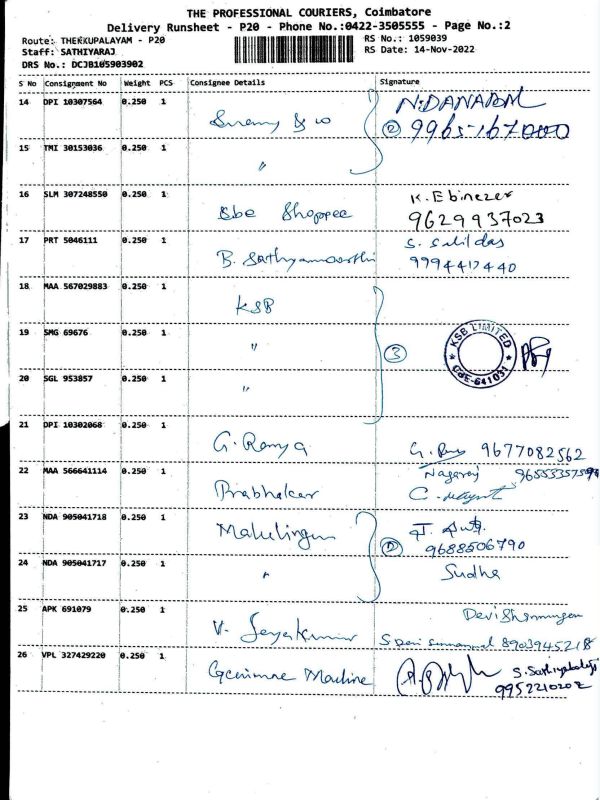 THE PROFESSIONAL COURIERS, Coimbatore
Delivery Runsheet - P20 - Phone No.:0422-3505555 - Page No.:2
Route: THEKKUPALAYAM - P20
RS No.: 1059039
Staff: SATHIYARAJ
RS Date: 14-Nov-2022
DRS No.: DCJB105903902
S No Consignment No Weight PCS Consignee Details Signature
14 DPI 10307564 0.250 1
N.DANABAL
② 9965167000
15 TMI 30153036 0.250 1
"
16 SLM 307248550 0.250 1
K. Ebinezer
Sbe Shoppee 9629937023
17 PRT 5046111 0.250 1
B. Sathyamoorthi 9994417440
18 MAA 567029883 0.250 1
KSB
19 SMG 69676 0.250 1
" ③ KSB LIMITED CBE-641031
20 SGL 953857 0.250 1
"
21 DPI 10302068 0.250 1
G. Ramya 9677082562
22 MAA 566641114 0.250 1
Nagaraj
Prabhakar
23 NDA 905041718 0.250 1
9688506790
24 NDA 905041717 0.250 1
" Sudha
25 APK 691079 0.250 1
V. Jeyakumar 8903945218
26 VPL 327429220 0.250 1
Machine
9952210202